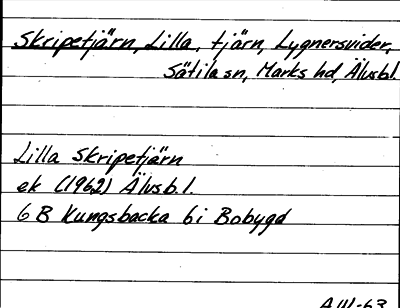 Skripetjärn, Lilla, tjärn, Lygnersvider,
Sätila sn, Marks hd, Älvsbl.
Lilla Skripetjärn
ek (1962) Älvsb.l.
6 B Kungsbacka 6i Bobygd